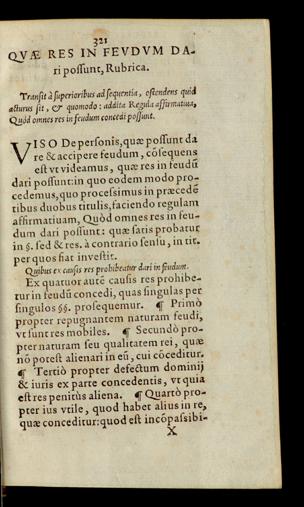 321
QVÆ RES IN FEVDVM DA-
ri possunt, Rubrica.
Transit à superioribus ad sequentia, ostendens quid
acturus sit, & quomodo: addita Regula affirmatiua,
Quòd omnes res in feudum concedi possunt.
VISO De personis, quæ possunt da
re & accipere feudum, cõsequens
est vt videamus, quæ res in feudũ
dari possunt: in quo eodem modo pro-
cedemus, quo processimus in præcedẽ
tibus duobus titulis, faciendo regulam
affirmatiuam, Quòd omnes res in feu-
dum dari possunt: quæ satis probatur
in §. sed & res. à contrario sensu, in tit.
per quos fiat inuestit.
Quibus ex causis res prohibeatur dari in feudum.
Ex quatuor autẽ causis res prohibe-
tur in feudũ concedi, quas singulas per
singulos §§. prosequemur. ¶ Primò
propter repugnantem naturam feudi,
vt sunt res mobiles. ¶ Secundò pro-
pter naturam seu qualitatem rei, quæ
nõ potest alienari in eũ, cui cõceditur.
¶ Tertiò propter defectum dominij
& iuris ex parte concedentis, vt quia
est res penitùs aliena. ¶ Quartò pro-
pter ius vtile, quod habet alius in re,
quæ conceditur: quod est incõpassibi-
X